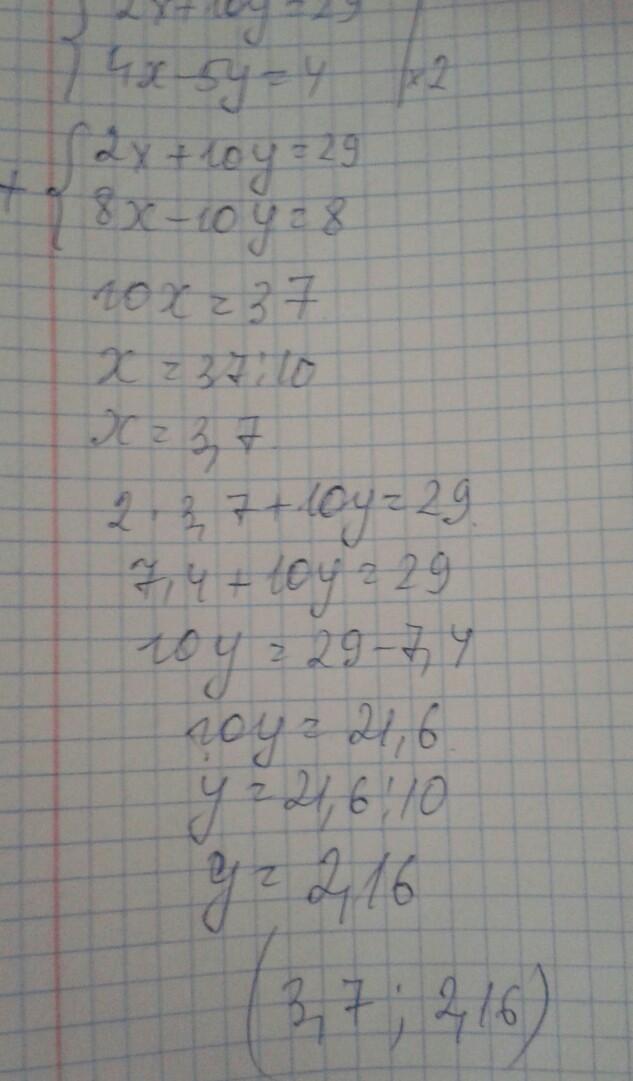 2x+10y=29
4x-5y=4 | ×2
+ { 2x+10y=29
8x-10y=8
10x=37
x=37:10
x=3,7
2·3,7+10y=29
7,4+10y=29
10y=29-7,4
10y=21,6
y=21,6:10
y=2,16
(3,7; 2,16)